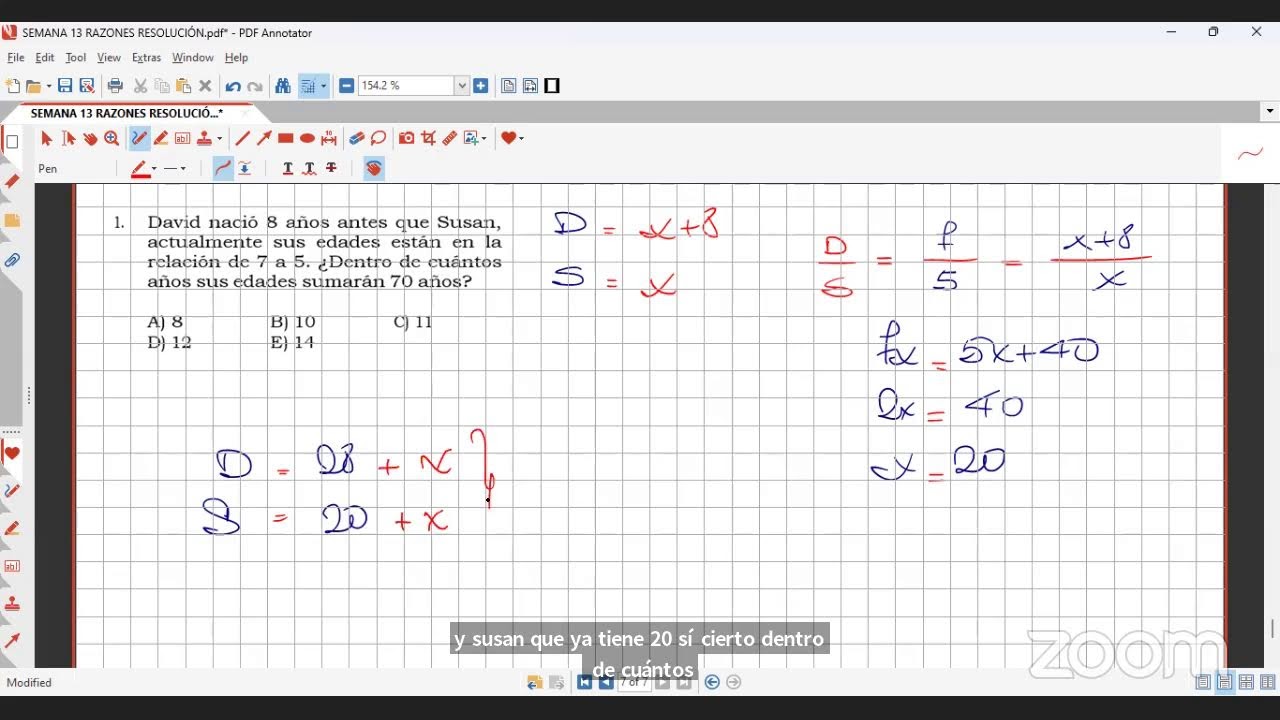 SEMANA 13 RAZONES RESOLUCIÓN.pdf* - PDF Annotator
File Edit Tool View Extras Window Help
154.2 %
SEMANA 13 RAZONES RESOLUCIÓ...*
Pen
1. David nació 8 años antes que Susan,
actualmente sus edades están en la
relación de 7 a 5. ¿Dentro de cuántos
años sus edades sumarán 70 años?
A) 8 B) 10 C) 11
D) 12 E) 14
D = x+8
S = x
D/S = 7/5 = x+8/x
7x = 5x+40
2x = 40
x = 20
D = 28 + x
S = 20 + x
y susan que ya tiene 20 sí cierto dentro
de cuántos
zoom
Modified
7 of 7